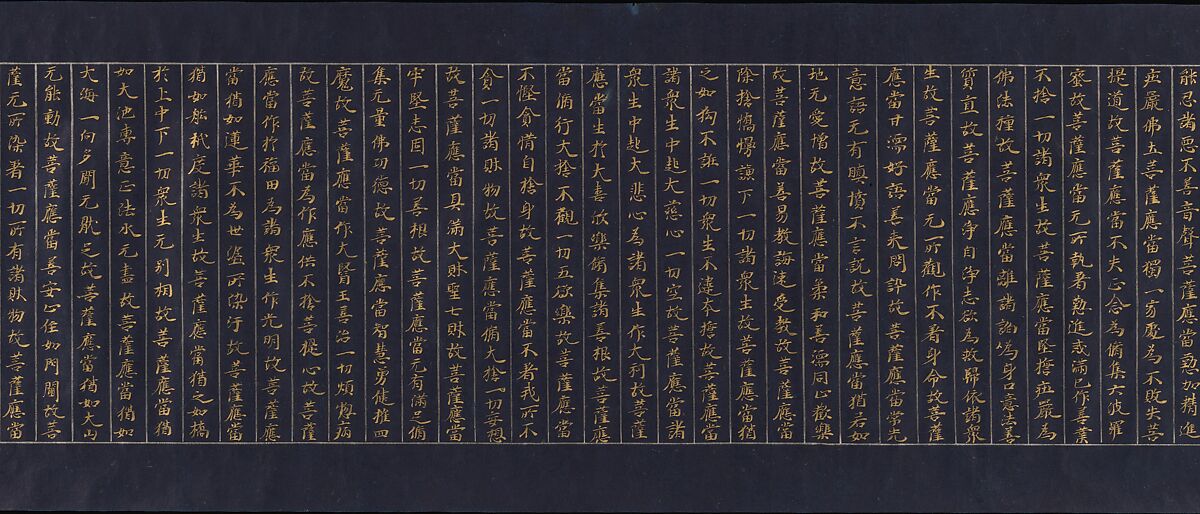 能忍諸惡不善音聲菩薩應當勤加精進
莊嚴佛土菩薩應當獨一旁處為不敗失菩
提道故菩薩應當不失心念為脩集六波羅
蜜故菩薩應當无所執著懃進或滿已作善業
不捨一切諸衆生故菩薩應當堅擔莊嚴為
佛法種故菩薩應當離諸訛偽身口意法善
質直故菩薩應淨自淨志欲為救歸依諸衆
生故菩薩應當元所觀作不著身命故菩薩
應當甘濡好語善来問訊故菩薩應當常光
意語无有瞋憒不言說故菩薩應當猶若如
地无愛憎故菩薩應當柔和善濡同心歡樂
故菩薩應當善易教誨速受教故菩薩應當
除捨憍慢謙下一切諸衆生故菩薩應當猶
之如狗不誑一切衆生不違本擔故菩薩應當
諸衆生中起大慈心一切空故菩薩應當諸
衆生中起大悲心為諸衆生作大利故菩薩
應當生於大喜欣樂脩集諸善根故菩薩應
當脩行大捨不觀一切五欲樂故菩薩應當
不慳貪惜自捨身故菩薩應當不著我所不
貪一切諸財物故菩薩應當脩大捨一切妄想
故菩薩應當具滿大財聖七財故菩薩應當
牢堅志固一切善根故菩薩應當元有滿足脩
集元量佛功德故菩薩應當智慧勇健摧四
魔故菩薩應當作大醫王善治一切煩惱病
故菩薩應當為作應供不捨菩提心故菩薩
應當作於福田為諸衆生作光明故菩薩應
當猶如蓮華不為世盜所染汙故菩薩應當
猶如船栰度諸衆生故菩薩應當猶之如橋
於上中下一切衆生元別相故菩薩應當猶
如大池專意正法水元盡故菩薩應當猶如
大海一向多聞元猒足故菩薩應當猶如大山
元能動故菩薩應當善安心住如門閫故菩
薩元所染著一切所有諸財物故菩薩應當